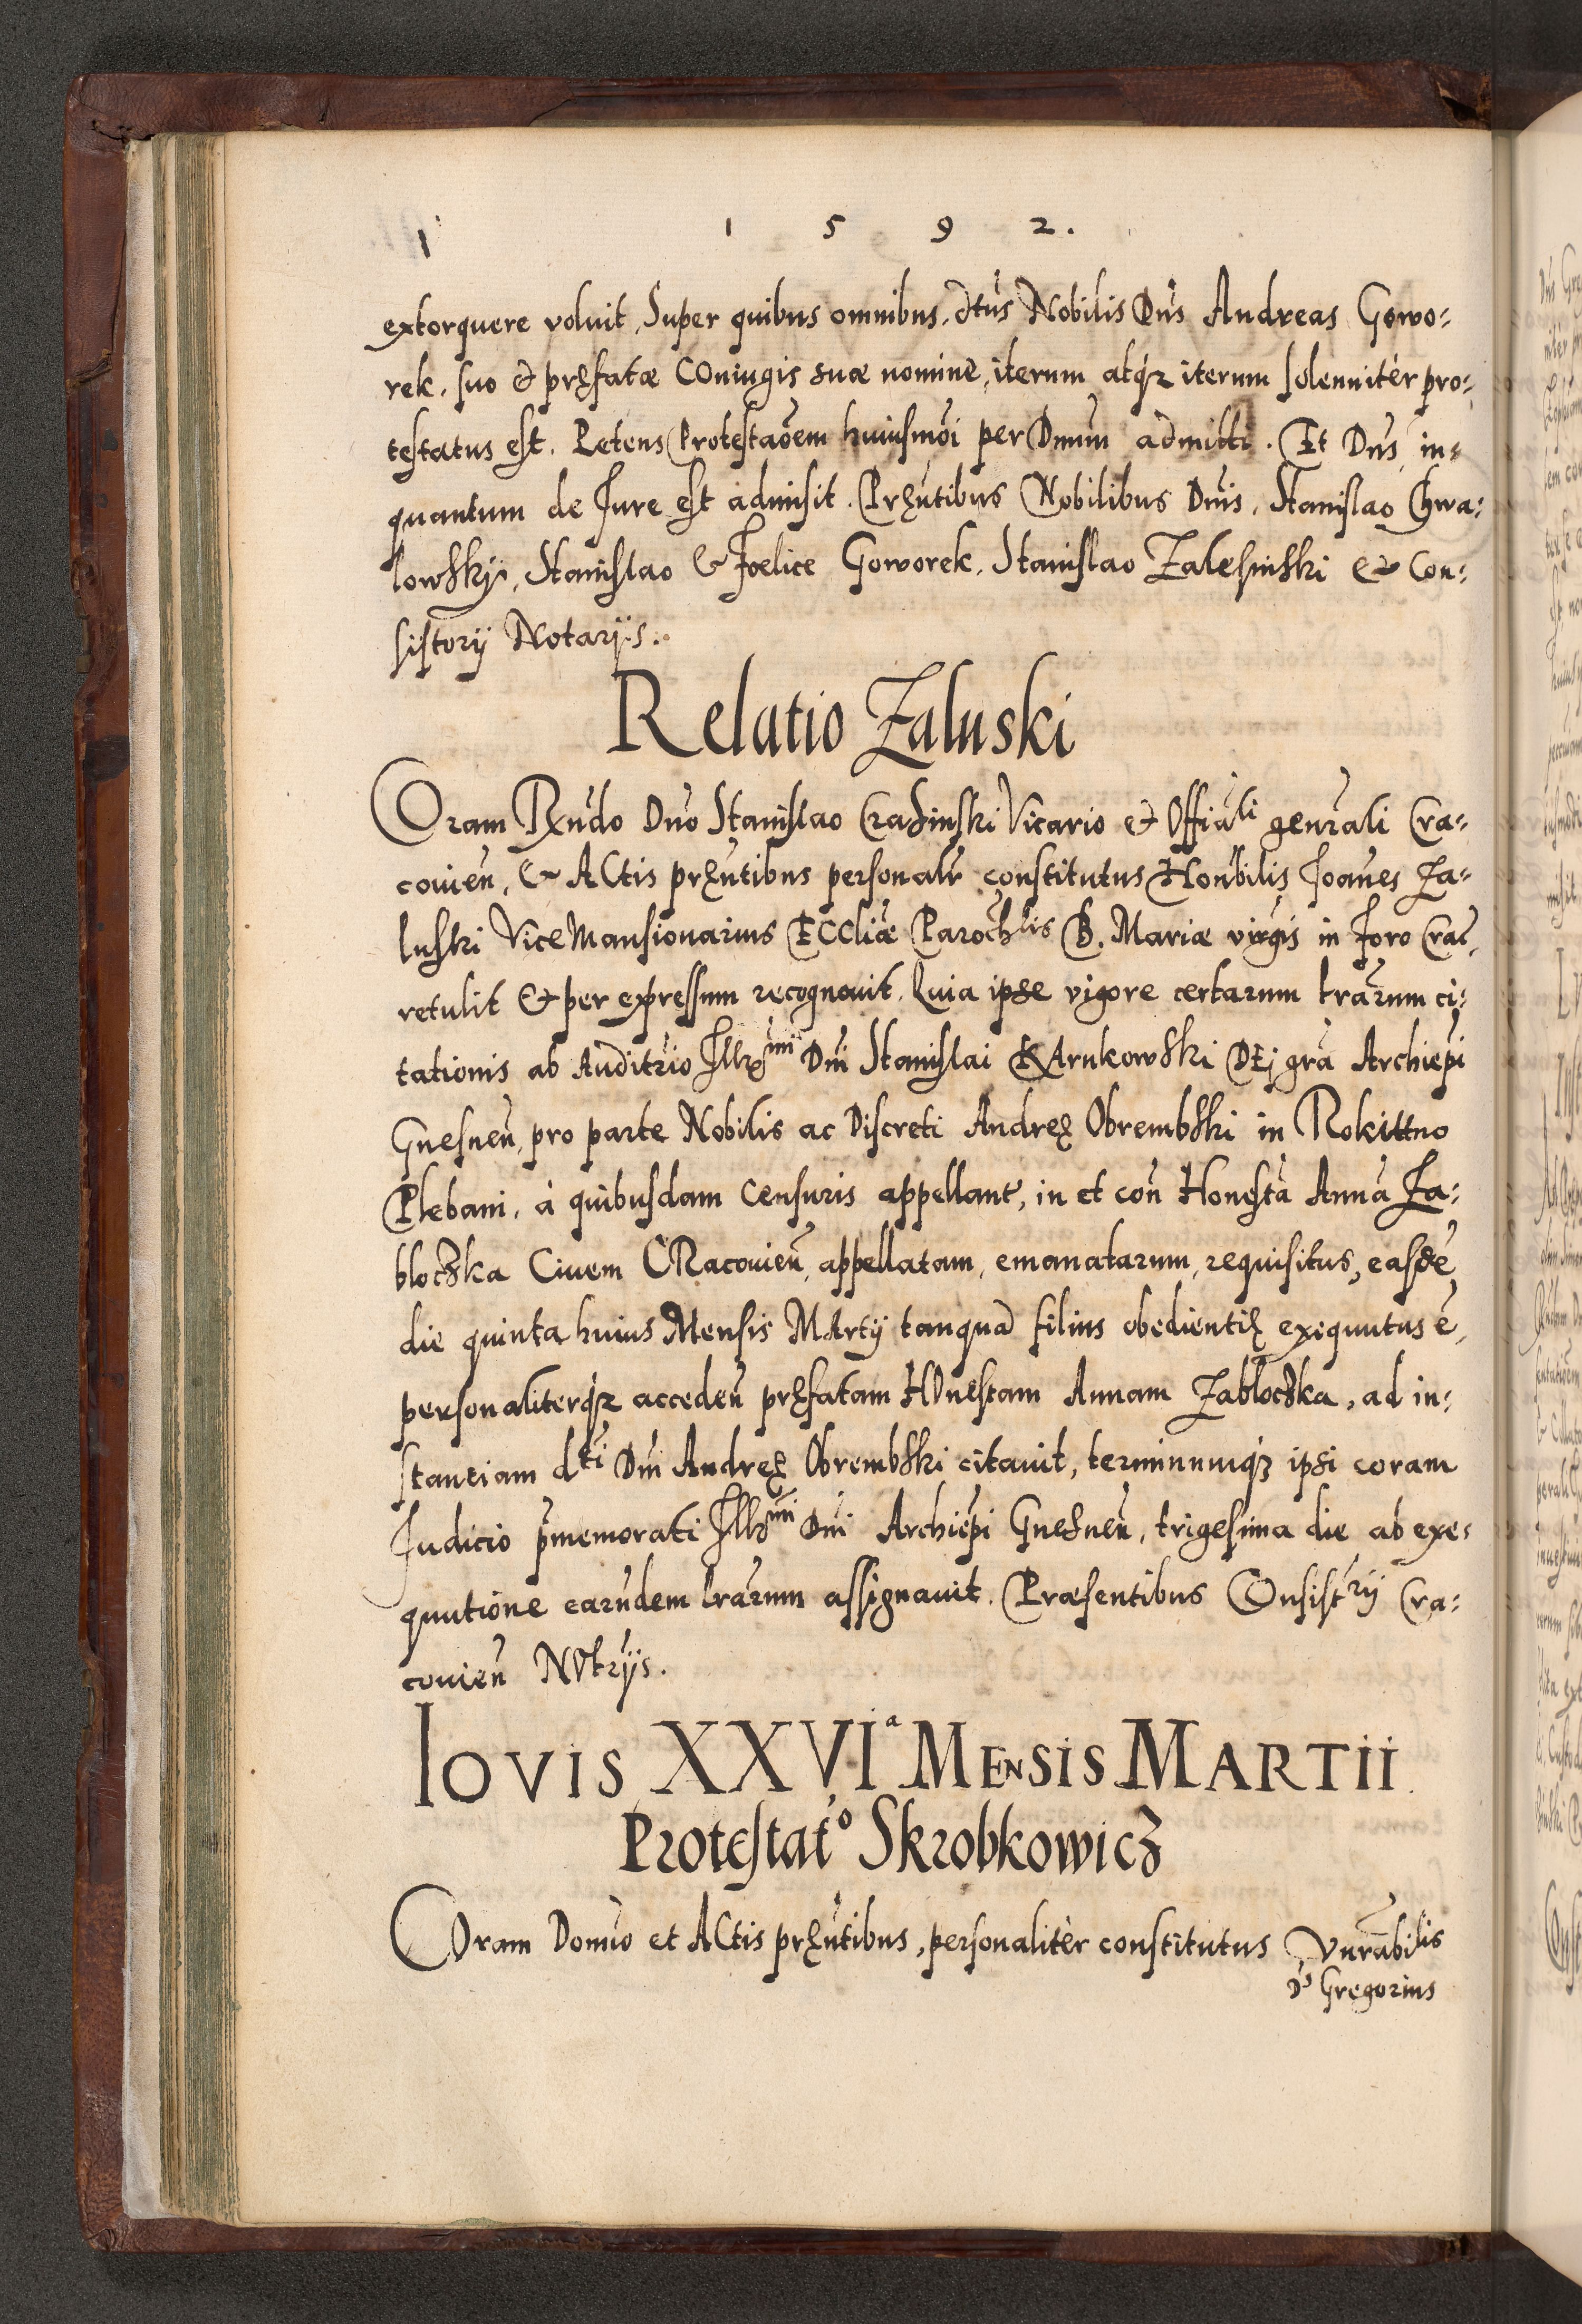 1 5 9 2.
extorquere voluit, Super quibus omnibus, dtus Nobilis Dns Andreas Gowo:
rek, suo & pręfatæ COniugis suæ nominè, iterum atq iterum solenniter pro:
testatus est. Petens Protestaōem huiusmōi per Dnum admitti. Et Dns in:
quantum de Jure est admisit. Pręntibus Nobilibus Dnis, Stanislao Chwa:
lowskij, Stanislao & Foelice Goworek, Stanislao Zalesinski & Con:
sistorij Notarijs.
Relatio Zaluski
COram Rndo Dno Stanislao Crasinski Vicario & Offiali genrali Cra:
couien, & ACtis pręntibus personalr constitutus Honbilis Joanes Za:
luski Vice Mansionarius ECCliæ Parochlis B. Mariæ virgis in foro Crac,
retulit & per expressum recognouit, Quia ipse vigore certarum lrarum ci:
tationis ab Auditrio Illmi Dni Stanislai KArnkowski DEj gra Archiepi
Gnesnen, pro parte Nobilis ac Discreti Andreę Obrembski in Rokittno
Plebani, à quibusdam Censuris appellant, in et con Honestā Annā Za:
bloczka Ciuem CRacouien, appellatam, emanatarum, requisitus, easdē
die quinta huius Mensis MArtij tanquā filius obedientię exiquutus ē,
personaliterq acceden pręfatam HOnestam Annam Zabloczka, ad in:
stantiam dti Dni Andreę Obrembski citauit, terminumq ipsi coram
Judicio pmemorati Illmi Dni Archiepi Gnesnen, trigesima die ab exe:
quutione earundem lrarum assignauit. Præsentibus COnsistrij Cra:
couien NOtrijs.
IOVIS XXVIa MENSIS MARTII.
Protestato Skrobkowicz
COram Domno et ACtis pręntibus, personalitèr constitutus Vnrabilis
Ds Gregorius